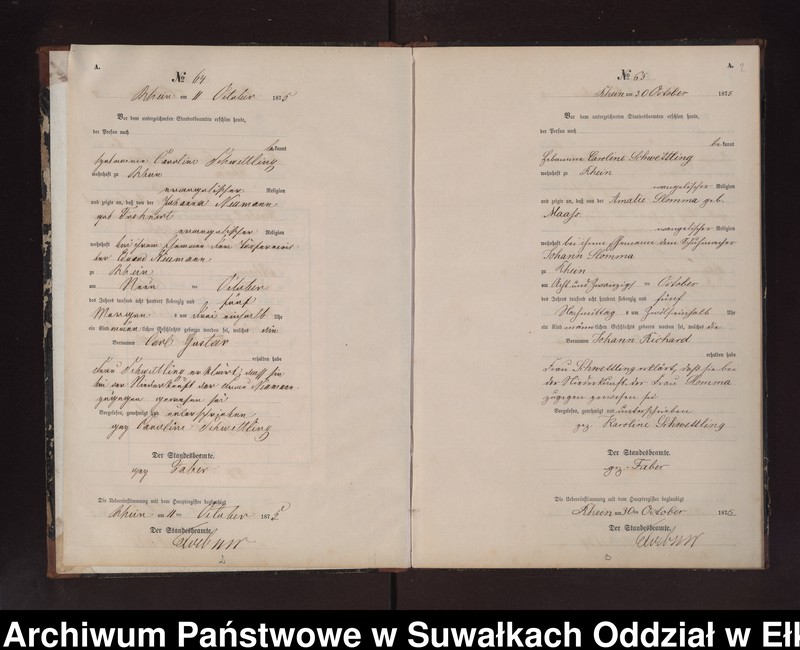 A.
№ 64
Rhein am 11 October 1875
Vor dem unterzeichneten Standesbeamten erschien heute,
der Person nach
bekannt
Hebamme Caroline Schwettling
wohnhaft zu Rhein
evangelischer Religion
und zeigte an, daß von der Johanna Neumann
geb
evangelischer Religion
wohnhaft bei ihrem Ehemann dem
Eduard Neumann
zu Rhein
am Neun ten October
des Jahres tausend acht hundert siebenzig und fünf
Morgens um drei einhalb Uhr
ein Kind männlichen Geschlechts geboren worden sei, welches den
Vornamen Carl Gustav
erhalten habe
Frau Schwettling erklärt, dass sie
bei der Niederkunft der Frau Neumann
zugegen gewesen sei
Vorgelesen, genehmigt und unterschrieben
gez Caroline Schwettling
Der Standesbeamte.
gez Faber
Die Uebereinstimmung mit dem Hauptregister beglaubigt
Rhein am 11ten October 1875
Der Standesbeamte.
2
A. 2
№ 65
Rhein am 30 October 1875
Vor dem unterzeichneten Standesbeamten erschien heute,
der Person nach
bekannt
Hebamme Caroline Schwettling
wohnhaft zu Rhein
evangelischer Religion
und zeigte an, daß von der Amalie Slomma geb.
Maass
evangelischer Religion
wohnhaft bei ihrem Ehemann dem Schuhmacher
Johann Slomma
zu Rhein
am Acht und Zwanzigsten October
des Jahres tausend acht hundert siebenzig und fünf
Nachmittag um Zwölfeinhalb Uhr
ein Kind männlichen Geschlechts geboren worden sei, welches die
Vornamen Johann Richard
erhalten habe
Frau Schwettling erklärt, daß sie bei
der Niederkunft der Frau Slomma
zugegen gewesen sei
Vorgelesen, genehmigt und unterschrieben
gez. Karoline Schwettling
Der Standesbeamte.
gez. Faber
Die Uebereinstimmung mit dem Hauptregister beglaubigt
Rhein am 30ten October 1875
Der Standesbeamte.
3
Archiwum Państwowe w Suwałkach Oddział w Ełk